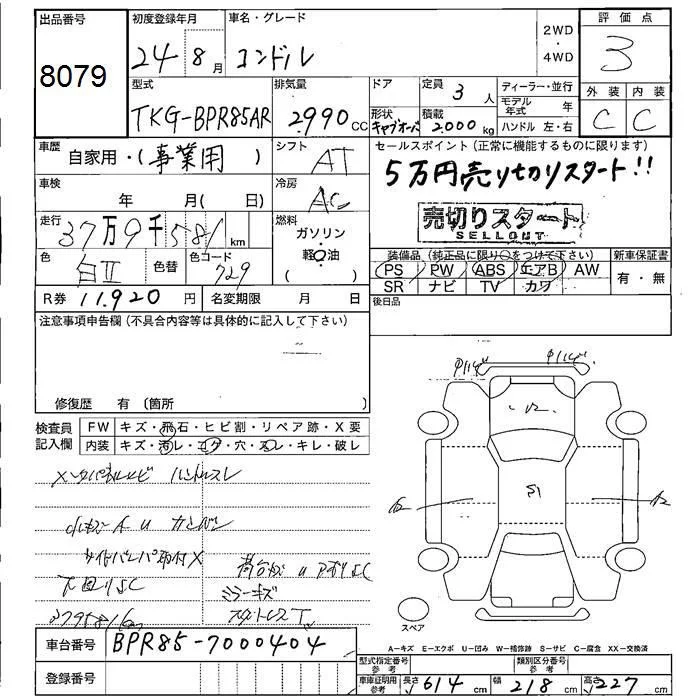 出品番号
8079
初度登録年月
24年8月
車名・グレード
コンドル
2WD
・
4WD
評価点
3
外装 内装
C C
型式
TKG-BPR85AR
排気量
2990 CC
ドア
形状
キャブオーバ
定員
3 人
積載
2000 kg
ディーラー・並行
モデル年式 年
ハンドル 左・右
車歴
自家用・(事業用)
シフト
AT
車検
年 月( 日)
冷房
AC
走行
37万9千581 km
燃料
ガソリン
・
軽油
( )
色
白II
色替
色コード
729
R券 11,920 円
名変期限 月 日
セールスポイント(正常に機能するものに限ります)
5万円売り切りスタート!!
売切りスタート
SELLOUT
装備品(純正品に限り○をつけて下さい)
PS PW ABS エアB AW
SR ナビ TV カワ
新車保証書
有・無
後日品
注意事項申告欄(不具合内容等は具体的に記入して下さい)
修復歴 有(箇所 )
検査員記入欄
FW キズ・飛石・ヒビ割・リペア跡・X要
内装 キズ・汚レ・コゲ・穴・スレ・キレ・破レ
ハンドルスレ
サイドバンパ取付X
下回りSC
ミラーキズ
379581km
S1
スペア
A-キズ E-エクボ U-凹み W-補修跡 S-サビ C-腐食 XX-交換済
車台番号 BPR85-7000404
登録番号
型式指定番号 参考
類別区分番号 参考
車庫証明用 参考
長さ 614 cm 幅 218 cm 高さ 227 cm